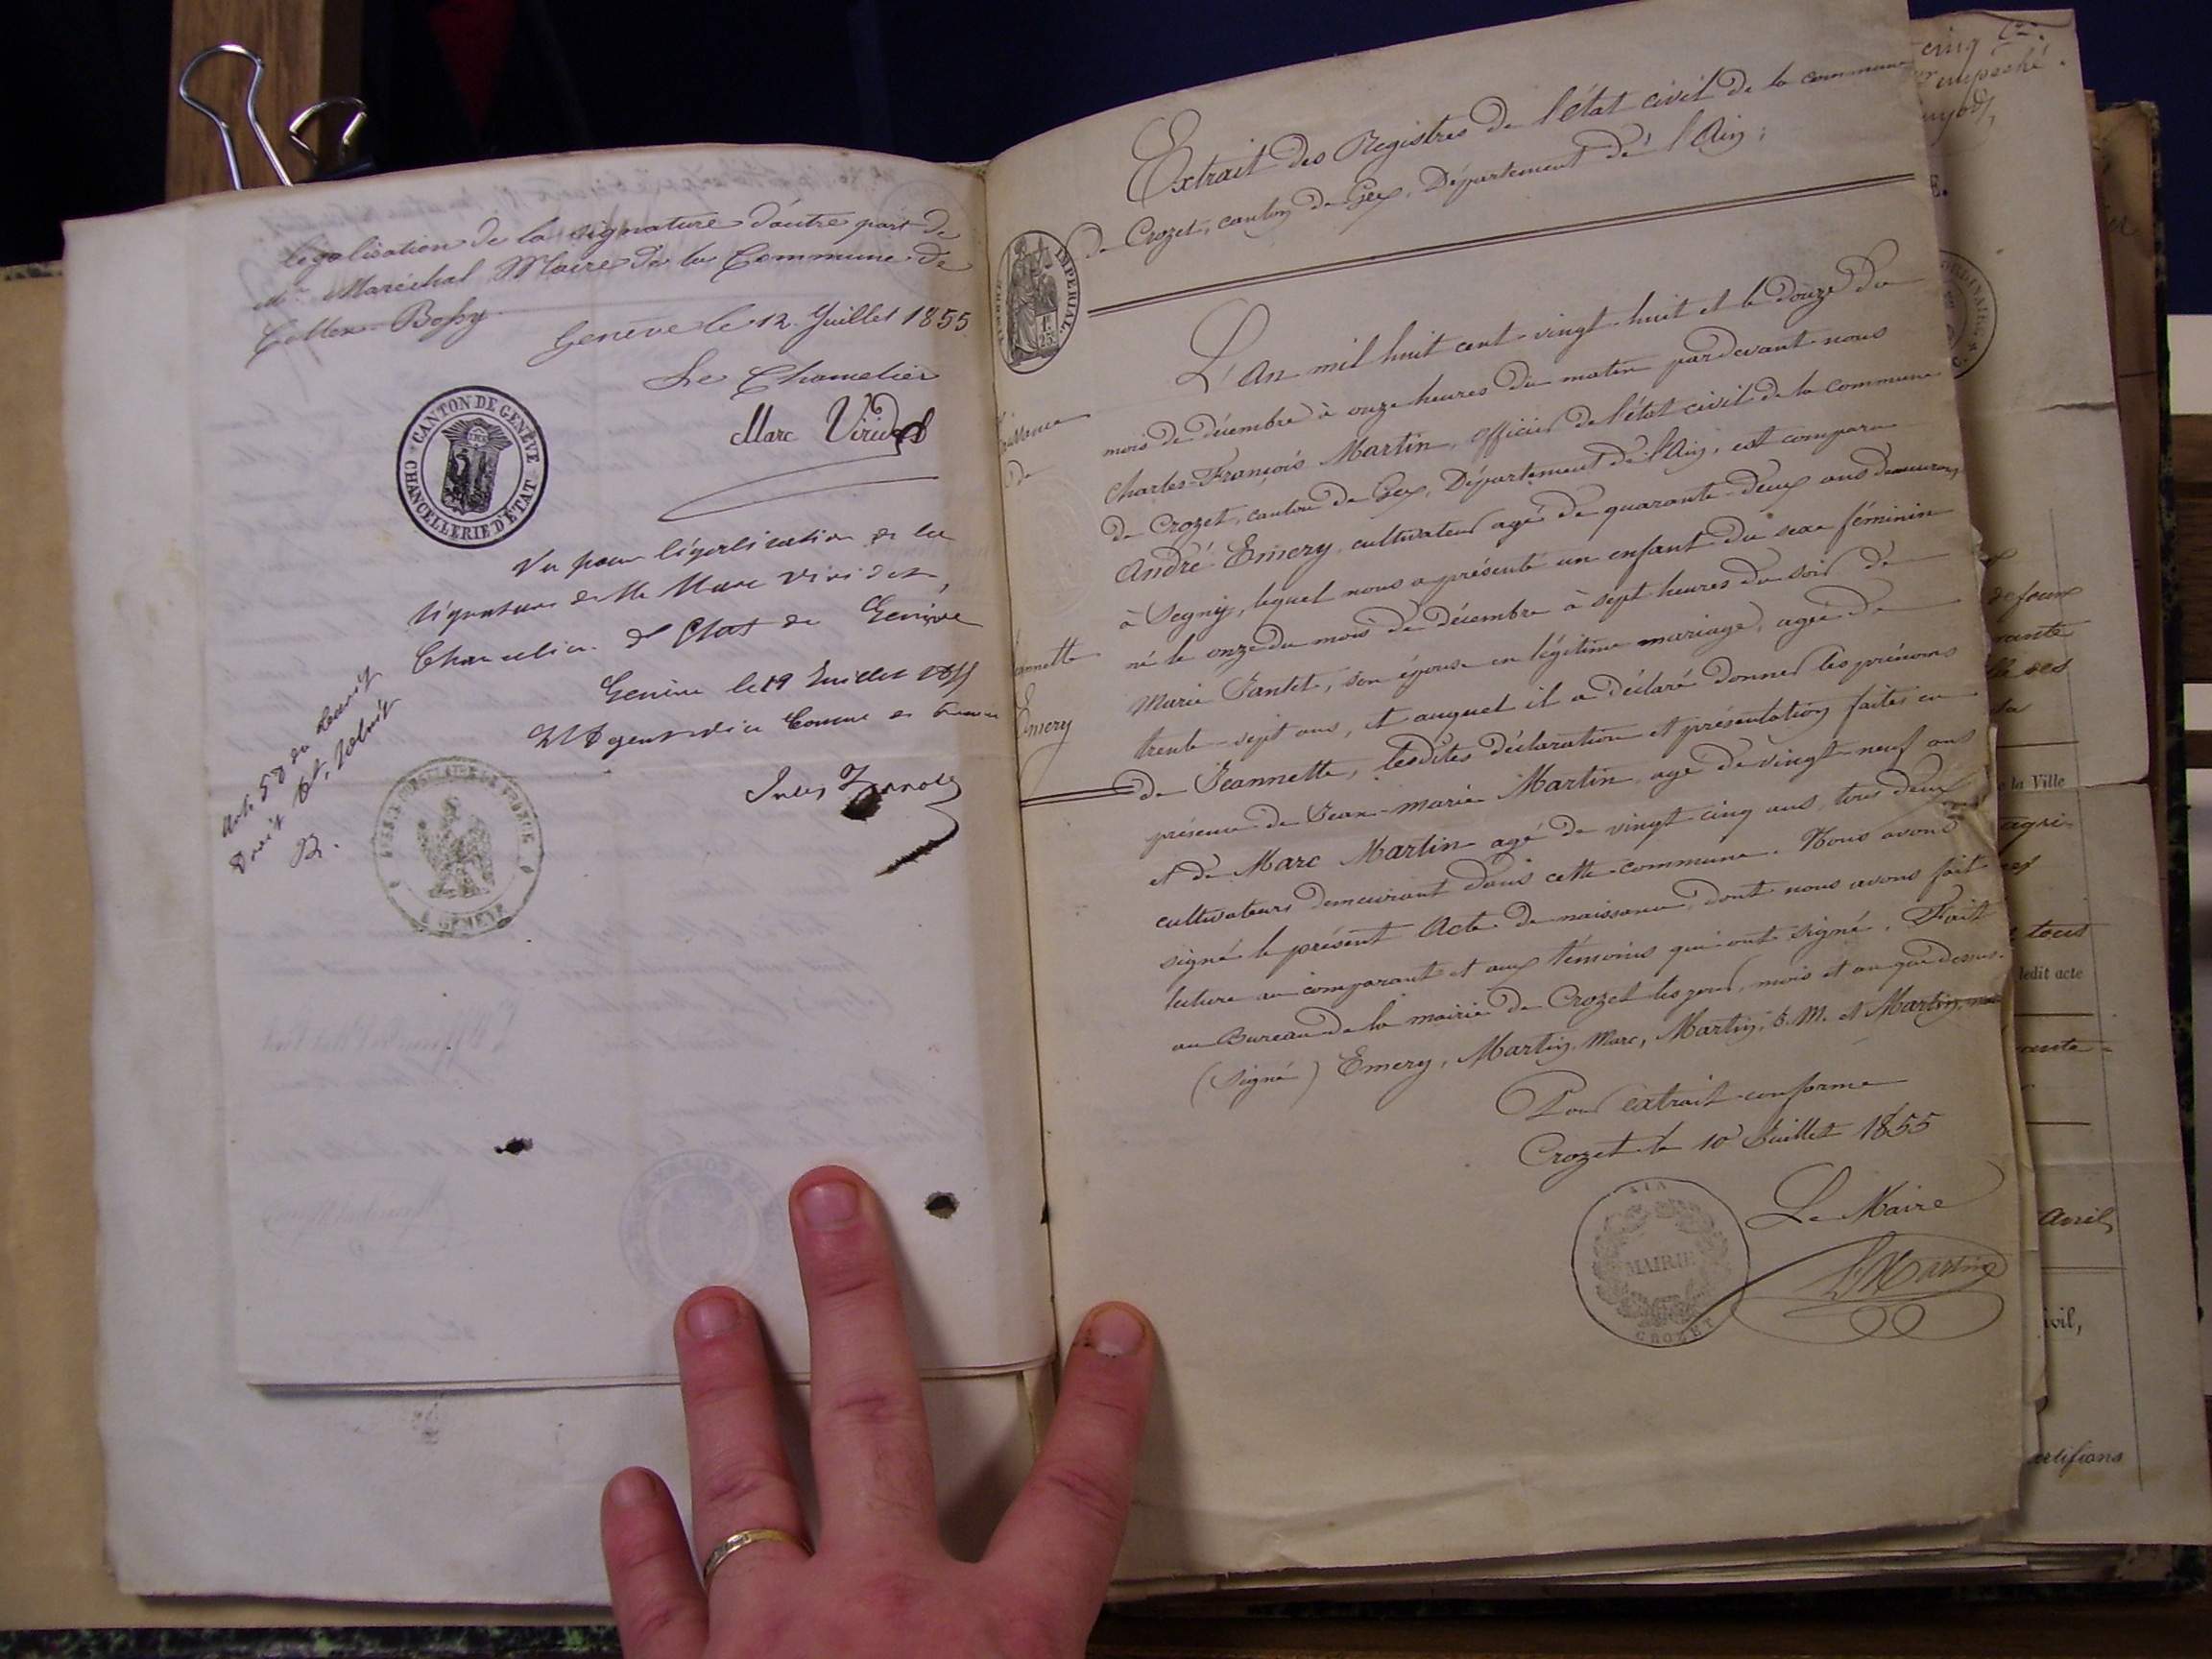 légalisation de la signature d'autre part de
Mr Maréchal Maire de la Commune de
Collex-Bossy.
Genève le 12 Juillet 1855
Le Chancelier
Marc Viridet
CANTON DE GENÈVE
CHANCELLERIE D'ÉTAT
Vu pour légalisation de la
signature de Mr Marc Viridet,
Chancelier d'Etat de Genève
Genève le 19 Juillet 1855
Consul de France
Jules
Art. 58 du
Droit
B.
A GENEVE
Extrait des Registres de l'état civil de la commune
de Crozet, canton de Gex, Département de l'Ain;
TIMBRE IMPERIAL
1f. 25c.
Naissance
de
Jeannette
Emery
L'An mil huit cent vingt-huit et le douze du
mois de décembre à onze heures du matin pardevant nous
Charles-François Martin, officier de l'état civil de la commune
de Crozet, canton de Gex, Département de l'Ain, est comparu
André Emery, cultivateur agé de quarante-deux ans demeurant
à Segny, lequel nous a présenté un enfant du sexe féminin
né le onze du mois de décembre à sept heures du soir de
Marie Jantet, son épouse en légitime mariage, agée de
trente-sept ans, et auquel il a déclaré donner les prénoms
de Jeannette, lesdites déclaration et présentation faites en
présence de Jean-marie Martin agé de vingt-neuf ans
et de Marc Martin agé de vingt cinq ans, tous deux
cultivateurs demeurant dans cette commune. Nous avons
signé le présent Acte de naissance, dont nous avons fait
lecture au comparant et aux témoins qui ont signé. Fait
au Bureau de la mairie de Crozet les jour, mois et an que dessus.
(Signé) Emery, Martin Marc, Martin, J. M. et Martin,
Pour extrait conforme
Crozet le 10 Juillet 1855
Le Maire
Martin
AIN
MAIRIE
CROZET
cinq
empêché
la Ville
agri-
tous
ledit acte
Avril
ivil,
certifions